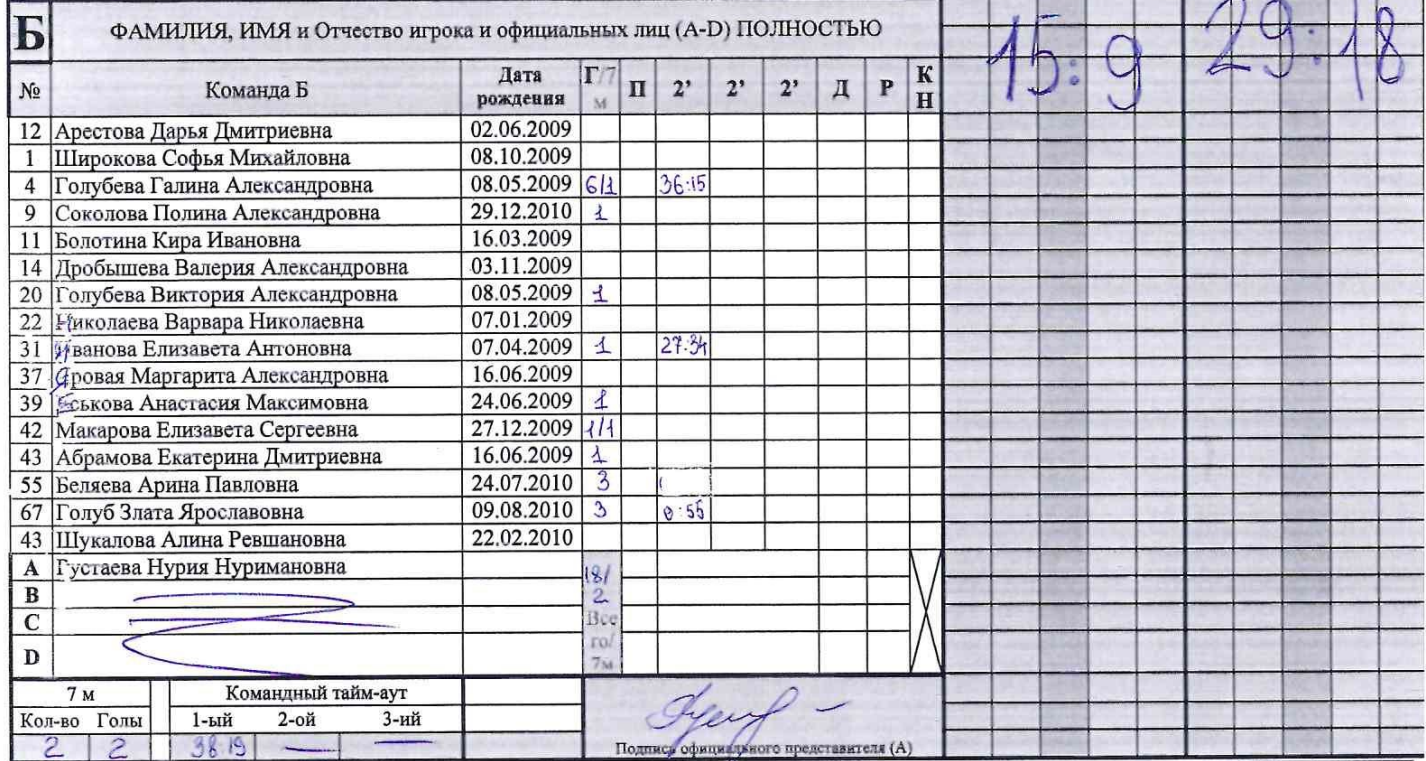 Б ФАМИЛИЯ, ИМЯ и Отчество игрока и официальных лиц (A-D) ПОЛНОСТЬЮ
15:9 29:18
№ Команда Б Дата рождения Г/7м П 2’ 2’ 2’ Д Р КН
12 Арестова Дарья Дмитриевна 02.06.2009
1 Широкова Софья Михайловна 08.10.2009
4 Голубева Галина Александровна 08.05.2009 6/1 36:15
9 Соколова Полина Александровна 29.12.2010 1
11 Болотина Кира Ивановна 16.03.2009
14 Дробышева Валерия Александровна 03.11.2009
20 Голубева Виктория Александровна 08.05.2009 1
22 Николаева Варвара Николаевна 07.01.2009
31 Иванова Елизавета Антоновна 07.04.2009 1 27:34
37 Яровая Маргарита Александровна 16.06.2009
39 Еськова Анастасия Максимовна 24.06.2009 1
42 Макарова Елизавета Сергеевна 27.12.2009 1/1
43 Абрамова Екатерина Дмитриевна 16.06.2009 1
55 Беляева Арина Павловна 24.07.2010 3
67 Голуб Злата Ярославовна 09.08.2010 3 0:55
43 Шукалова Алина Ревшановна 22.02.2010
A Густаева Нурия Нуримановна 18/
B 2
C Все
го/
D 7м
7 м Командный тайм-аут
Кол-во Голы 1-ый 2-ой 3-ий
2 2 38 19 — —
Подпись официального представителя (А)